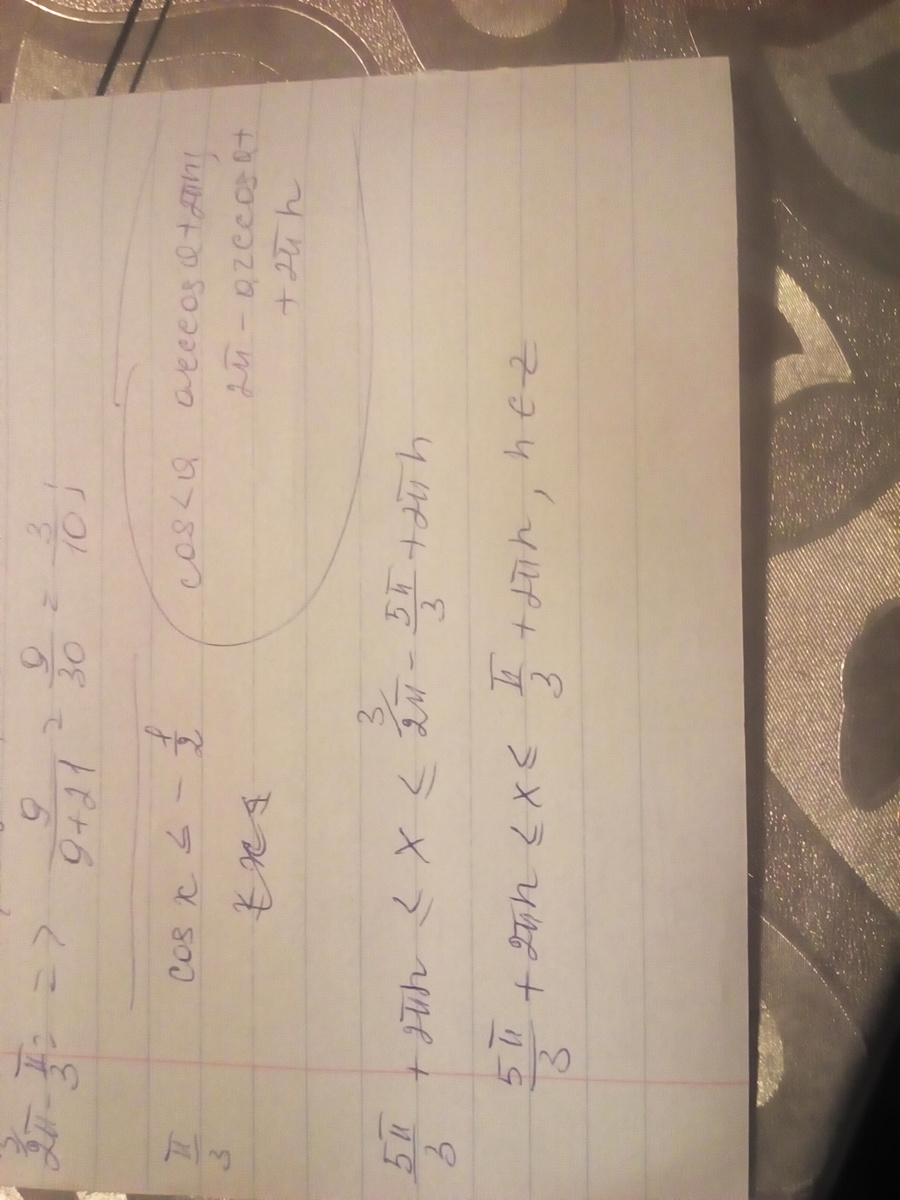 2π - π/3 = => 9/(9+21) = 9/30 = 3/10;
π/3 cos x ≤ - 1/2
cos < a arccos a + 2πn;
2π - arccos a +
+ 2πn
5π/3 + 2πn ≤ x ≤ 2π - 5π/3 + 2πn
5π/3 + 2πn ≤ x ≤ π/3 + 2πn, n ∈ z